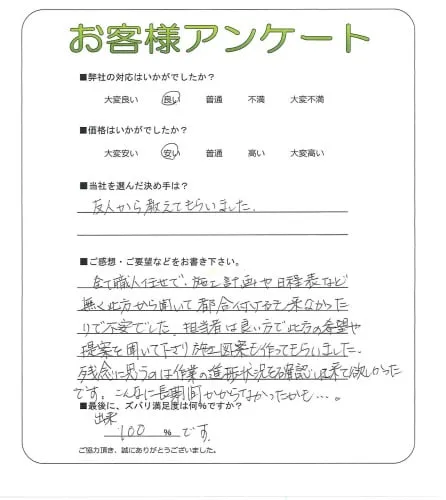 お客様アンケート
■弊社の対応はいかがでしたか?
大変良い 良い 普通 不満 大変不満
■価格はいかがでしたか?
大変安い 安い 普通 高い 大変高い
■当社を選んだ決め手は?
友人から教えてもらいました。
■ご感想・ご要望などをお書き下さい。
全て職人任せで、施工計画や日程表など
無く此方から聞いて都合付けると来なかった
りで不安でした。担当者は良い方で此方の希望や
提案を聞いて下さり施工図案も作ってもらいました。
残念に思うのは作業の進行状況を確認しに来て欲しかった
です。こんなに長期間かからなかったかも…。
■最後に、ズバリ満足度は何%ですか?
出来
100 % です。
ご協力頂き、誠にありがとうございました。